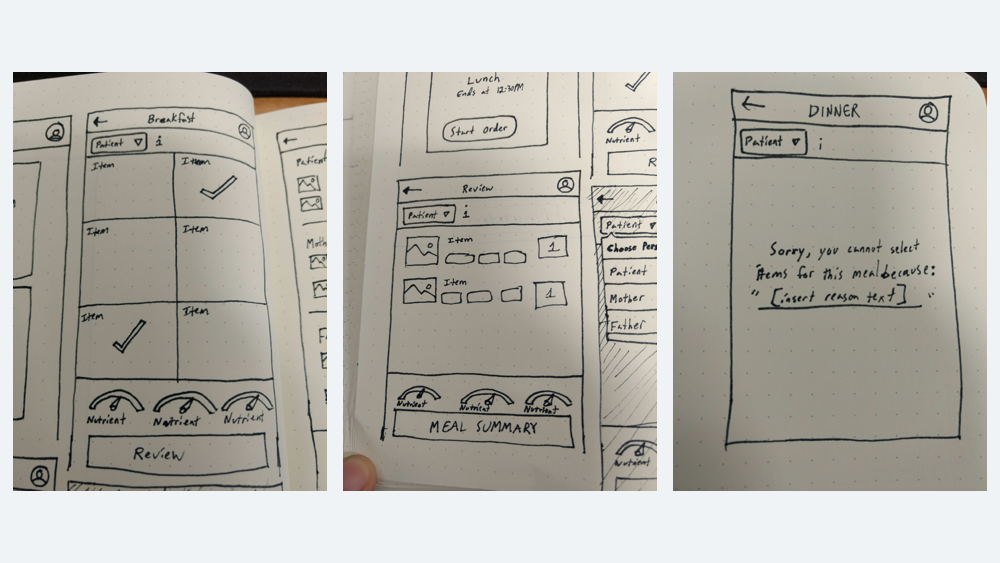 Breakfast
Patient i
Item Item
Item Item
Item Item
Nutrient Nutrient Nutrient
Review
Patient
Lunch
Ends at 12:30PM
Start Order
Nutrient
R
Review
Patient i
Item
1
Item
1
Nutrient Nutrient Nutrient
MEAL SUMMARY
Patient
Choose Pers
Patient
Mother
Father
Nutrient
DINNER
Patient i
Sorry, you cannot select
items for this meal because:
" [insert reason text] "